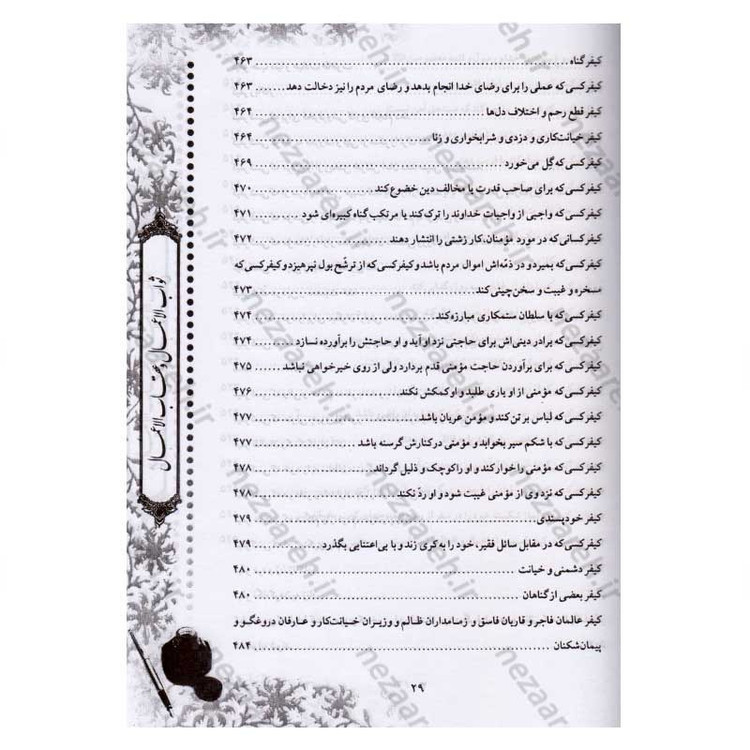 کیفر گناه ........ ۴۶۳
کیفر کسی که عملی را برای رضای خدا انجام بدهد و رضای مردم را نیز دخالت دهد ....... ۴۶۳
کیفر قطع رحم و اختلاف دل‌ها ........ ۴۶۴
کیفر خیانت‌کاری و دزدی و شرابخواری و زنا ........ ۴۶۴
کیفر کسی که گِل می‌خورد ........ ۴۶۹
کیفر کسی که برای صاحب قدرت یا مخالف دین خضوع کند ........ ۴۷۰
کیفر کسی که واجبی از واجبات خداوند را ترک کند یا مرتکب گناه کبیره‌ای شود ........ ۴۷۱
کیفر کسانی که در مورد مؤمنان، کار زشتی را انتشار دهند ........ ۴۷۲
کیفر کسی که بمیرد و در ذمّه‌اش اموال مردم باشد و کیفر کسی که از ترشّح بول نپرهیزد و کیفر کسی که
مسخره و غیبت و سخن‌چینی کند ........ ۴۷۳
کیفر کسی که با سلطان ستمکاری مبارزه کند ........ ۴۷۴
کیفر کسی که برادر دینی‌اش برای حاجتی نزد او آید و او حاجتش را برآورده نسازد ........ ۴۷۴
کیفر کسی که برای برآوردن حاجت مؤمنی قدم بردارد ولی از روی خیرخواهی نباشد ........ ۴۷۵
کیفر کسی که مؤمنی از او یاری طلبد و او کمکش نکند ........ ۴۷۶
کیفر کسی که لباس بر تن کند و مؤمن عریان باشد ........ ۴۷۷
کیفر کسی که با شکم سیر بخوابد و مؤمنی در کنارش گرسنه باشد ........ ۴۷۷
کیفر کسی که مؤمنی را خوار کند و او را کوچک و ذلیل گرداند ........ ۴۷۸
کیفر کسی که نزد وی از مؤمنی غیبت شود و او ردّ نکند ........ ۴۷۸
کیفر خودپسندی ........ ۴۷۹
کیفر کسی که در مقابل سائل فقیر، خود را به کری زند و با بی‌اعتنایی بگذرد ........ ۴۷۹
کیفر دشمنی و خیانت ........ ۴۸۰
کیفر بعضی از گناهان ........ ۴۸۰
کیفر عالمان فاجر و قاریان فاسق و زمامداران ظالم و وزیران خیانت‌کار و عارفان دروغگو و
پیمان‌شکنان ........ ۴۸۴
ثواب الاعمال و عقاب الاعمال
۲۹
nezaareh.ir